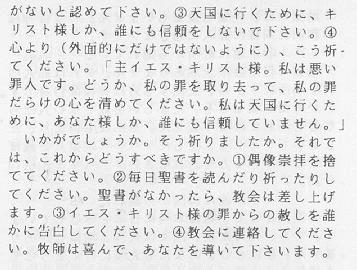 がないと認めて下さい。③天国に行くために、キ
リスト様しか、誰にも信頼をしないで下さい。④
心より（外面的にだけではないように）、こう祈っ
てください。「主イエス・キリスト様。私は悪い
罪人です。どうか、私の罪を取り去って、私の罪
だらけの心を清めてください。私は天国に行くた
めに、あなた様しか、誰にも信頼していません。」
　いかがでしょうか。そう祈りましたか。それで
は、これからどうすべきですか。①偶像崇拝を捨
ててください。②毎日聖書を読んだり祈ったりし
てください。聖書がなかったら、教会は差し上げ
ます。③イエス・キリスト様の罪からの赦しを誰
かに告白してください。④教会に連絡してくださ
い。牧師は喜んで、あなたを導いて下さいます。